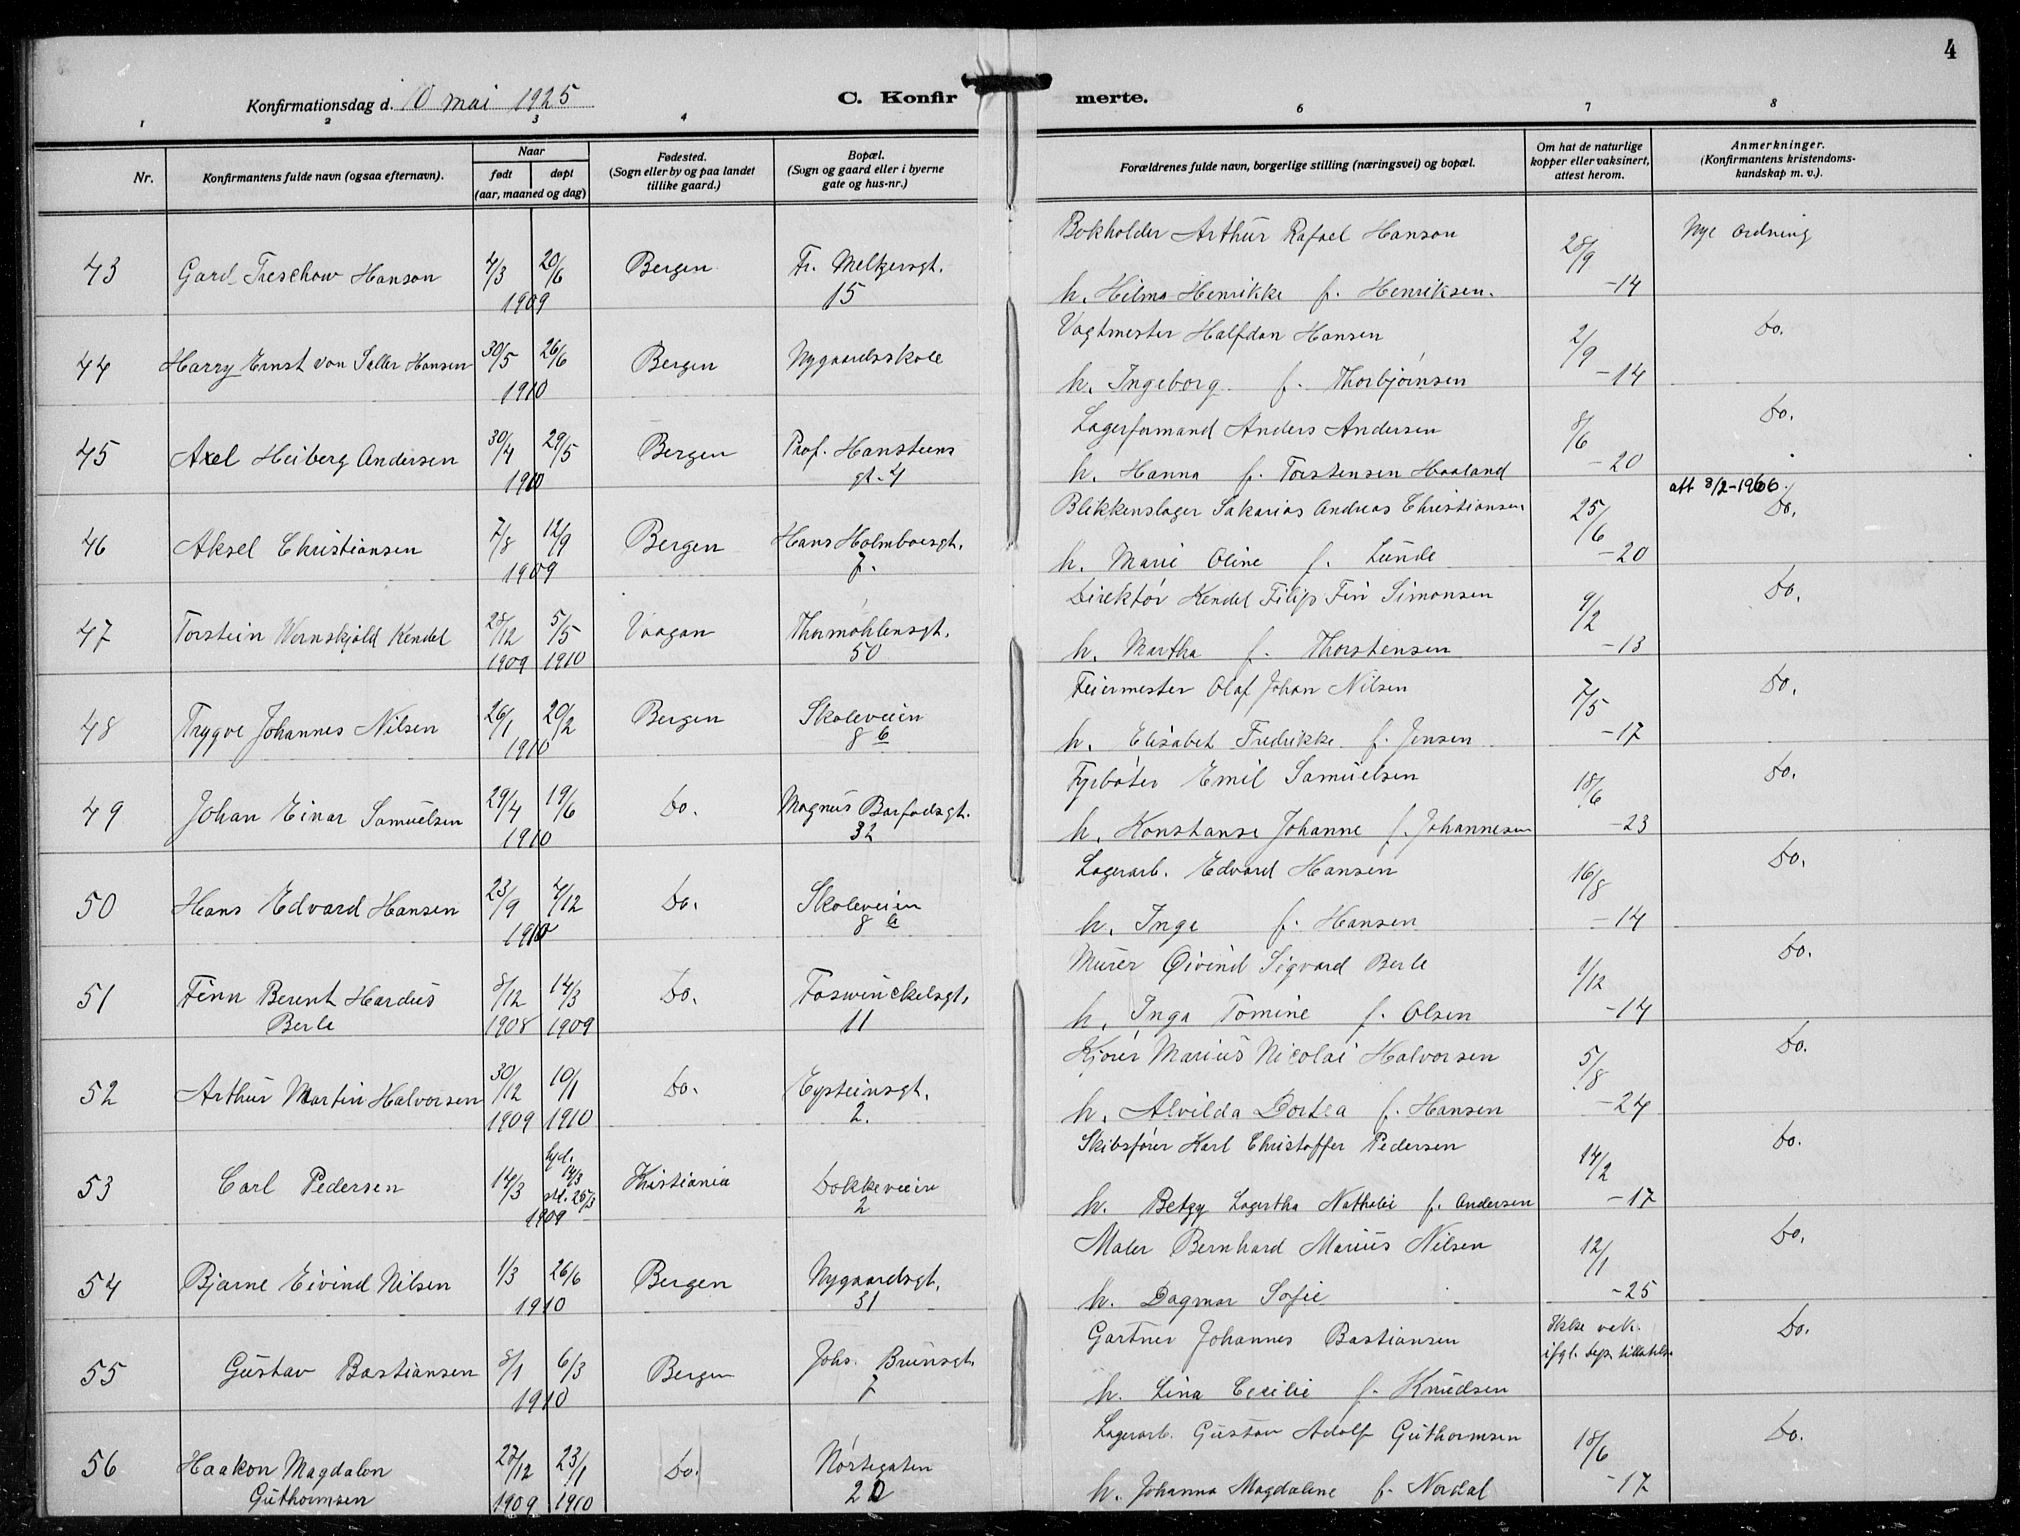 4
Konfirmationsdag d. 10 mai 1925
C. Konfir merte.
1 2 3 4 6 7 8
Nr.
Konfirmantens fulde navn (ogsaa efternavn).
Naar
født døpt
(aar, maaned og dag)
Fødested.
(Sogn eller by og paa landet
tillike gaard.)
Bopæl.
(Sogn og gaard eller i byerne
gate og hus-nr.)
Forældrenes fulde navn, borgerlige stilling (næringsvei) og bopæl.
Om hat de naturlige
kopper eller vaksinert,
attest herom.
Anmerkninger.
(Konfirmantens kristendoms-
kundskap m. v.).
Bokholder Arthur Rafael Hanson 28/9 Nye ordning
43 Gard Treschow Hanson 4/3 20/6 Bergen Fr. Meltzersgt.
1909 15 h. Hilma Henrikke f. Henriksen. -14
Vagtmester Halfdan Hansen 2/9 Do.
44 Harry Ernst von Saller Hansen 30/5 26/6 Bergen Nygaardsskole
1910 h. Ingeborg f. Thorbjørnsen -14
Lagerformand Anders Andersen 8/6 Do.
45 Axel Heiberg Andersen 30/4 29/5 Bergen Prof. Hansteens
1910 gt. 4 h. Hanna f. Torstensen Haaland -20
att 8/2-1966.
Blikkenslager Sakarias Andreas Christiansen 25/6 Do.
46 Aksel Christiansen 7/8 12/9 Bergen Hans Holmboesgt.
1909 7. h. Marie Oline f. Lunde -20
Direktør Kendel Filip Fin Simonsen 9/2 Do.
47 Torstein Wernskjold Kendel 28/12 5/5 Vaagan Thormøhlensgt.
1909 1910 50 h. Martha f. Thorstensen -13
Feiermester Olaf Johan Nilsen 7/5 Do.
48 Trygve Johannes Nilsen 26/1 20/2 Bergen Skoleveien
1910 8 b h. Elisabet Fredrikke f. Jensen -17
Fyrbøter Emil Samuelsen 18/6 Do.
49 Johan Einar Samuelsen 29/4 19/6 Do. Magnus Barfodsgt.
1910 32 h. Konstanse Johanne f. Johannesen -23
Lagerarb. Edvard Hansen 16/8 Do.
50 Hans Edvard Hansen 23/9 4/12 Do. Skoleveien
1910 8 a h. Inga f. Hansen -14
Murer Øivind Sigvard Berle 1/12 Do.
51 Finn Berent Hardus 8/12 14/3 Do. Foswinckelsgt.
Berle 1908 1909 11 h. Inga Tomine f. Olsen -14
Kjører Marius Nicolai Halvorsen 5/8 Do.
52 Arthur Martin Halvorsen 30/12 10/1 Do. Eysteinsgt.
1909 1910 2. h. Alvilda Dortea f. Hansen -24
Skibsfører Karl Christoffer Pedersen 14/2 Do.
53 Carl Pedersen 14/3 hjd. 14/3 stf. 25/3 Kristiania Dokkeveien
1909 2 h. Betzy Lagertha Nathalie f. Andersen -17
Maler Bernhard Marius Nilsen 12/1 Do.
54 Bjarne Eivind Nilsen 1/3 26/6 Bergen Nygaardsgt.
1910 31 h. Dagmar Sofie -25
Gartner Johannes Bastiansen Ikke vak. Do.
ifgl. dep. tillatelse
55 Gustav Bastiansen 8/1 6/3 Bergen Johs. Brunsgt.
1910 7 h. Lina Cecilie f. Knudsen
Lagerarb. Gustav Adolf Guthormsen 18/6 Do.
56 Haakon Magdalon 27/12 23/1 Do. Nøstegaten
Guthormsen 1909 1910 20 h. Johanna Magdalene f. Nordal -17